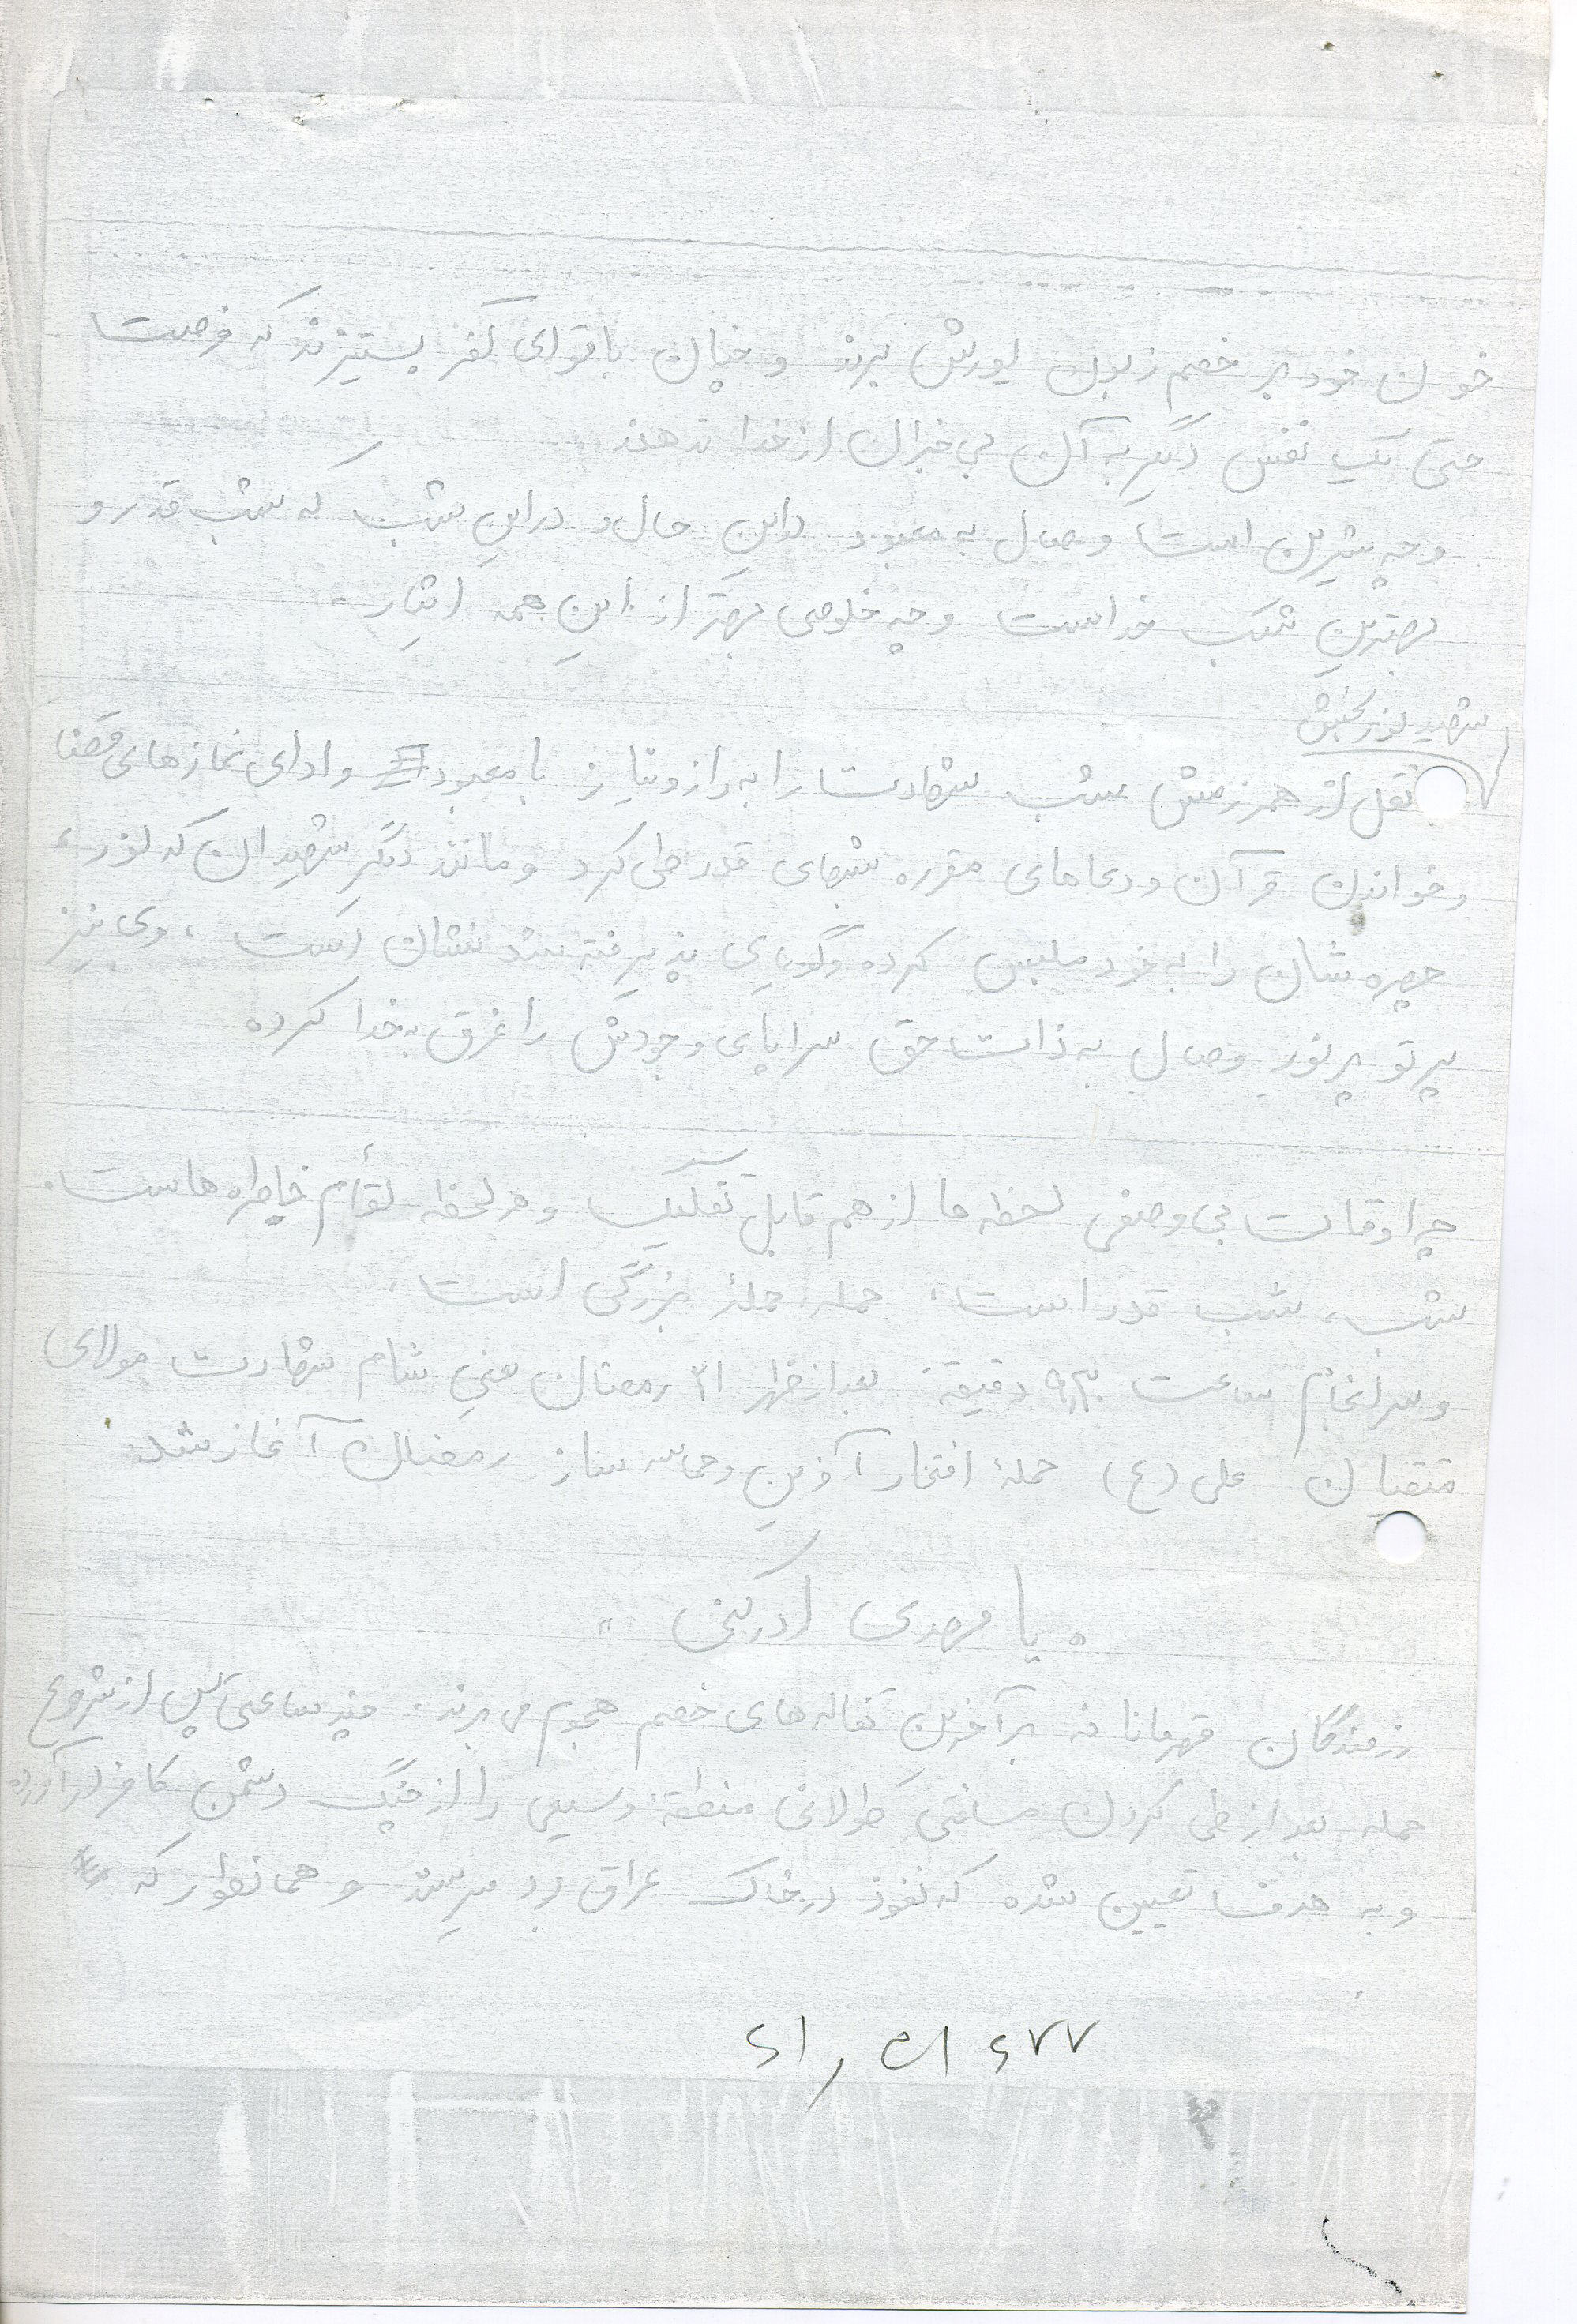 خون خود بر خصم زبون یورش برند و چنان با قوای کفر بستیزند که فرصت
حتی یک نفس دیگر به آن بی خبران از خدا ندهند.
و چه شیرین است وصال به معبود در این حال و در این شب که شب قدر و
بهترین شب خداست و چه خلوصی بهتر از این همه ایثار.
شهید نوربخش
نقل از همرزمش شب شهادت را به راز و نیاز با معبود و ادای نمازهای قضا
و خواندن قرآن و دعاهای مقرره شبهای قدر طی کرد و مانند دیگر شهیدان که نور،
چهره شان را به خود ملبس کرده و گویای پذیرفته شدنشان است، وی نیز
پرتو پر نور وصال به ذات حق سراپای وجودش را غرق به خدا کرده
چه اوقات بی وصفی لحظه ها از هم قابل تفکیک و هر لحظه توأم خاطره هاست.
شب، شب قدر است، حمله، حملهٔ بزرگی است.
و سرانجام ساعت ۹٫۳۰ دقیقه بعد از ظهر ۲۱ رمضان یعنی شام شهادت مولای
متقیان علی (ع) حملهٔ افتخار آفرین و حماسه ساز رمضان آغاز شد.
" یا مهدی ادرکنی "
رزمندگان قهرمانانه بر آخرین تفاله های خصم هجوم می برند. چند ساعتی پس از شروع
حمله بعد از طی کردن مسافتی طولانی منطقه وسیعی را از چنگ دشمن کافر در آورده
و به هدف تعیین شده که نفوذ در خاک عراق بود میرسند و همانطور که